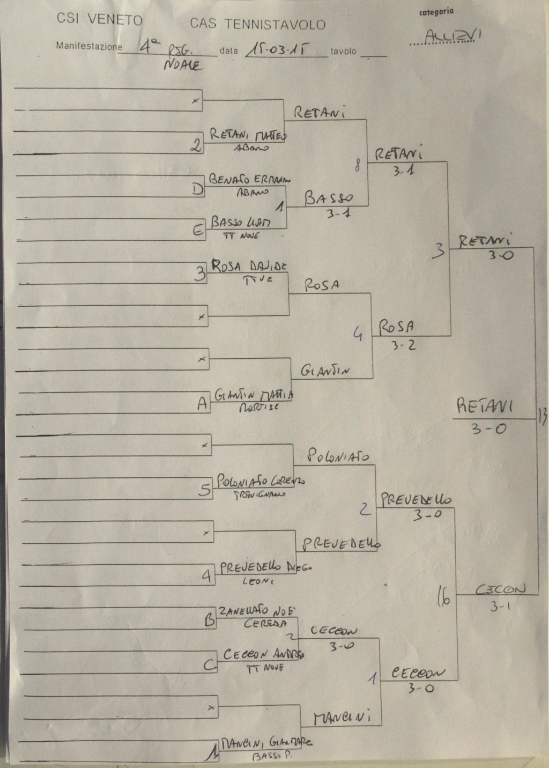 CSI VENETO CAS TENNISTAVOLO
categoria
ALLIEVI
Manifestazione 4ª REG. data 15-03-15 tavolo
NOALE
x
RETANI
2 RETANI MATTEO
ABANO
8 RETANI
3-1
D BENATO ERMANNO
ABANO
1 BASSO
3-1
E BASSO
TT NOVE
3 RETANI
3-0
3 ROSA DAVIDE
ROSA
x
4 ROSA
3-2
x
GIANTIN
A GIANTIN MATTIA
MORTISE
RETANI 13
3-0
x
POLONIATO
5 POLONIATO LORENZO
TREVIGNANO
2 PREVEDELLO
3-0
x
PREVEDELLO
4 PREVEDELLO DIEGO
LEONI
16 CECCON
3-1
B ZANELLATO NOE'
CEREDA
2 CECCON
3-0
C CECCON ANDREA
TT NOVE
1 CECCON
3-0
x
MANCINI
1 MANCINI GIANMARC
BASSI P.